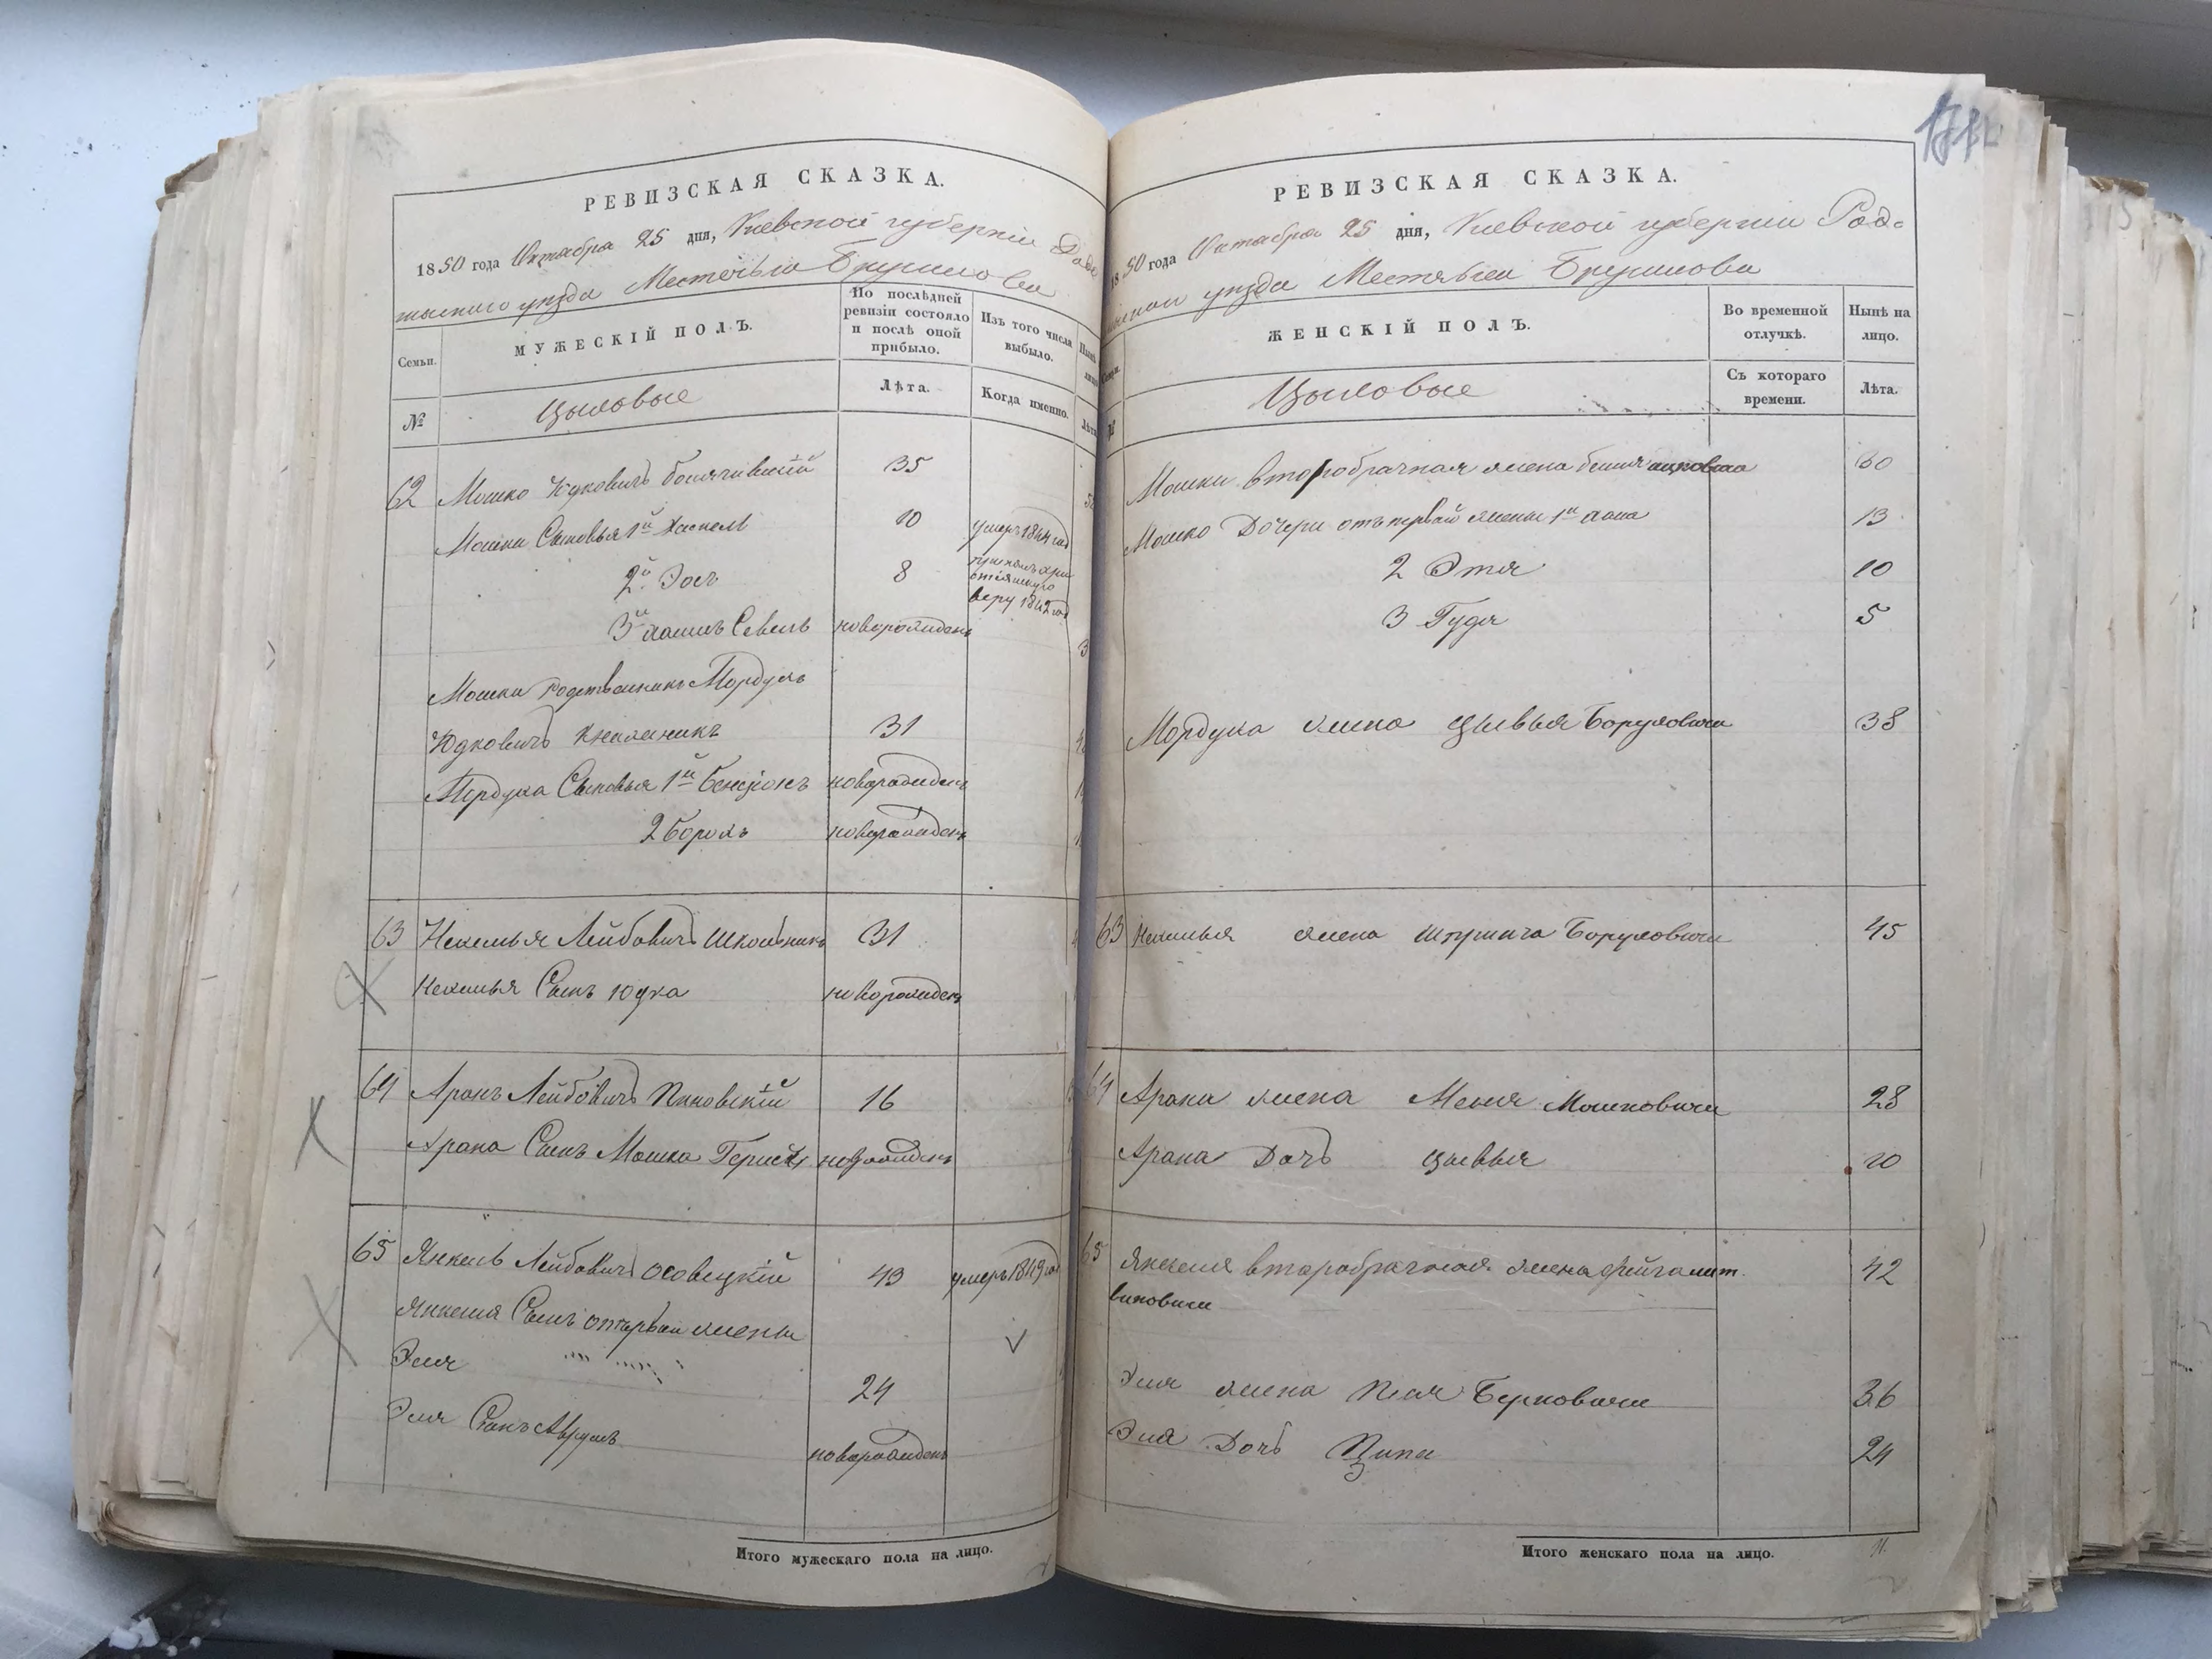 РЕВИЗСКАЯ СКАЗКА.
1850 года Октября 25 дня, Киевской губерніи Радо
мысльскаго уѣзда Местечка Брусилова
Семьи.
МУЖЕСКІЙ ПОЛЪ.
По послѣдней ревизіи состояло и послѣ оной прибыло.
Изъ того числа выбыло.
№
Лѣта.
Когда именно.
62 Мошко Юдковичъ 35
Мошки Сыновья 1й Хаскель 10 умеръ 1844 год
2й Іосъ 8 принялъ хри
стіянскую
веру 1842 год
3й Хаимъ Севель новорожденъ
Мошки родственникъ Мордухъ
Юдковичъ 31
Мордуха Сыновья 1й Бенсіонъ новорожденъ
2 Борохъ новорожденъ
63 Нехемья Лейбовичъ Школьникъ 31
Нехемья Сынъ Юдка новорожденъ
64 Аронъ Лейбовичъ 16
Арона Сынъ Мошко Гершко новорожденъ
65 Янкель Лейбовичъ Осовецкій 43 умеръ 1849 год
Янкеля Сынъ отъ первой жены
Эля 24
Эля Сынъ Аврумъ новорожденъ
Итого мужескаго пола на лицо.
РЕВИЗСКАЯ СКАЗКА.
1850 года Октября 25 дня, Киевской губерніи Радо
уѣзда Местечка Брусилова
ЖЕНСКІЙ ПОЛЪ.
Во временной отлучкѣ.
Нынѣ на лицо.
Съ котораго времени.
Лѣта.
Мошки второбрачная жена 60
Мошко Дочери отъ первой жены 1я Хана 13
2 Этя 10
3 Гудя 5
Мордуха жена Цывья Боруховичи 38
63 Нехемья жена Боруховичи 45
64 Арона жена Меня Мошковичи 28
Арона Дочь Цывья 10
65 Янкеля второбрачная жена Фейга Лит
виковичи 42
Эля жена Песя Берковичи 36
Эля Дочь Ципа 24
Итого женскаго пола на лицо.